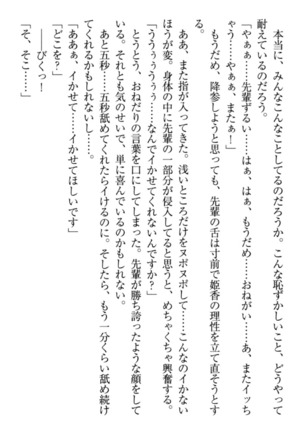 本当に、みんなこんなことしてるのだろうか。こんな恥ずかしいこと、どうやって
耐えているのだろう。
「やぁぁ……先輩ずるい……はぁ、はぁ、もうだめ……おねがい……あ、またイッち
ゃう……やぁぁ、またぁ！」
もうだめ、降参しようと思っても、先輩の舌は寸前で姫香の理性を立て直そうとす
る。
ああ、また指が入ってきた。浅いところだけをヌポヌポして……こんなのイかない
ほうが変。身体の中に先輩の一部分が侵入してると思うと、めちゃくちゃ興奮する。
「ううぅぅうぅ……なんでイカせてくれないんですか？」
とうとう、おねだりの言葉を口にしてしまった。先輩が勝ち誇ったような顔をして
いる。それとも気のせいで、単に喜んでいるのかもしれない。
あと五秒……五秒舐めてくれたらイけるのに。そしたら、もう一分くらい舐め続け
てくれるかもしれないし……。
「ああぁ、イカせて……イカせてほしいです」
「どこを？」
――びくっ！
「そ、そこ……」